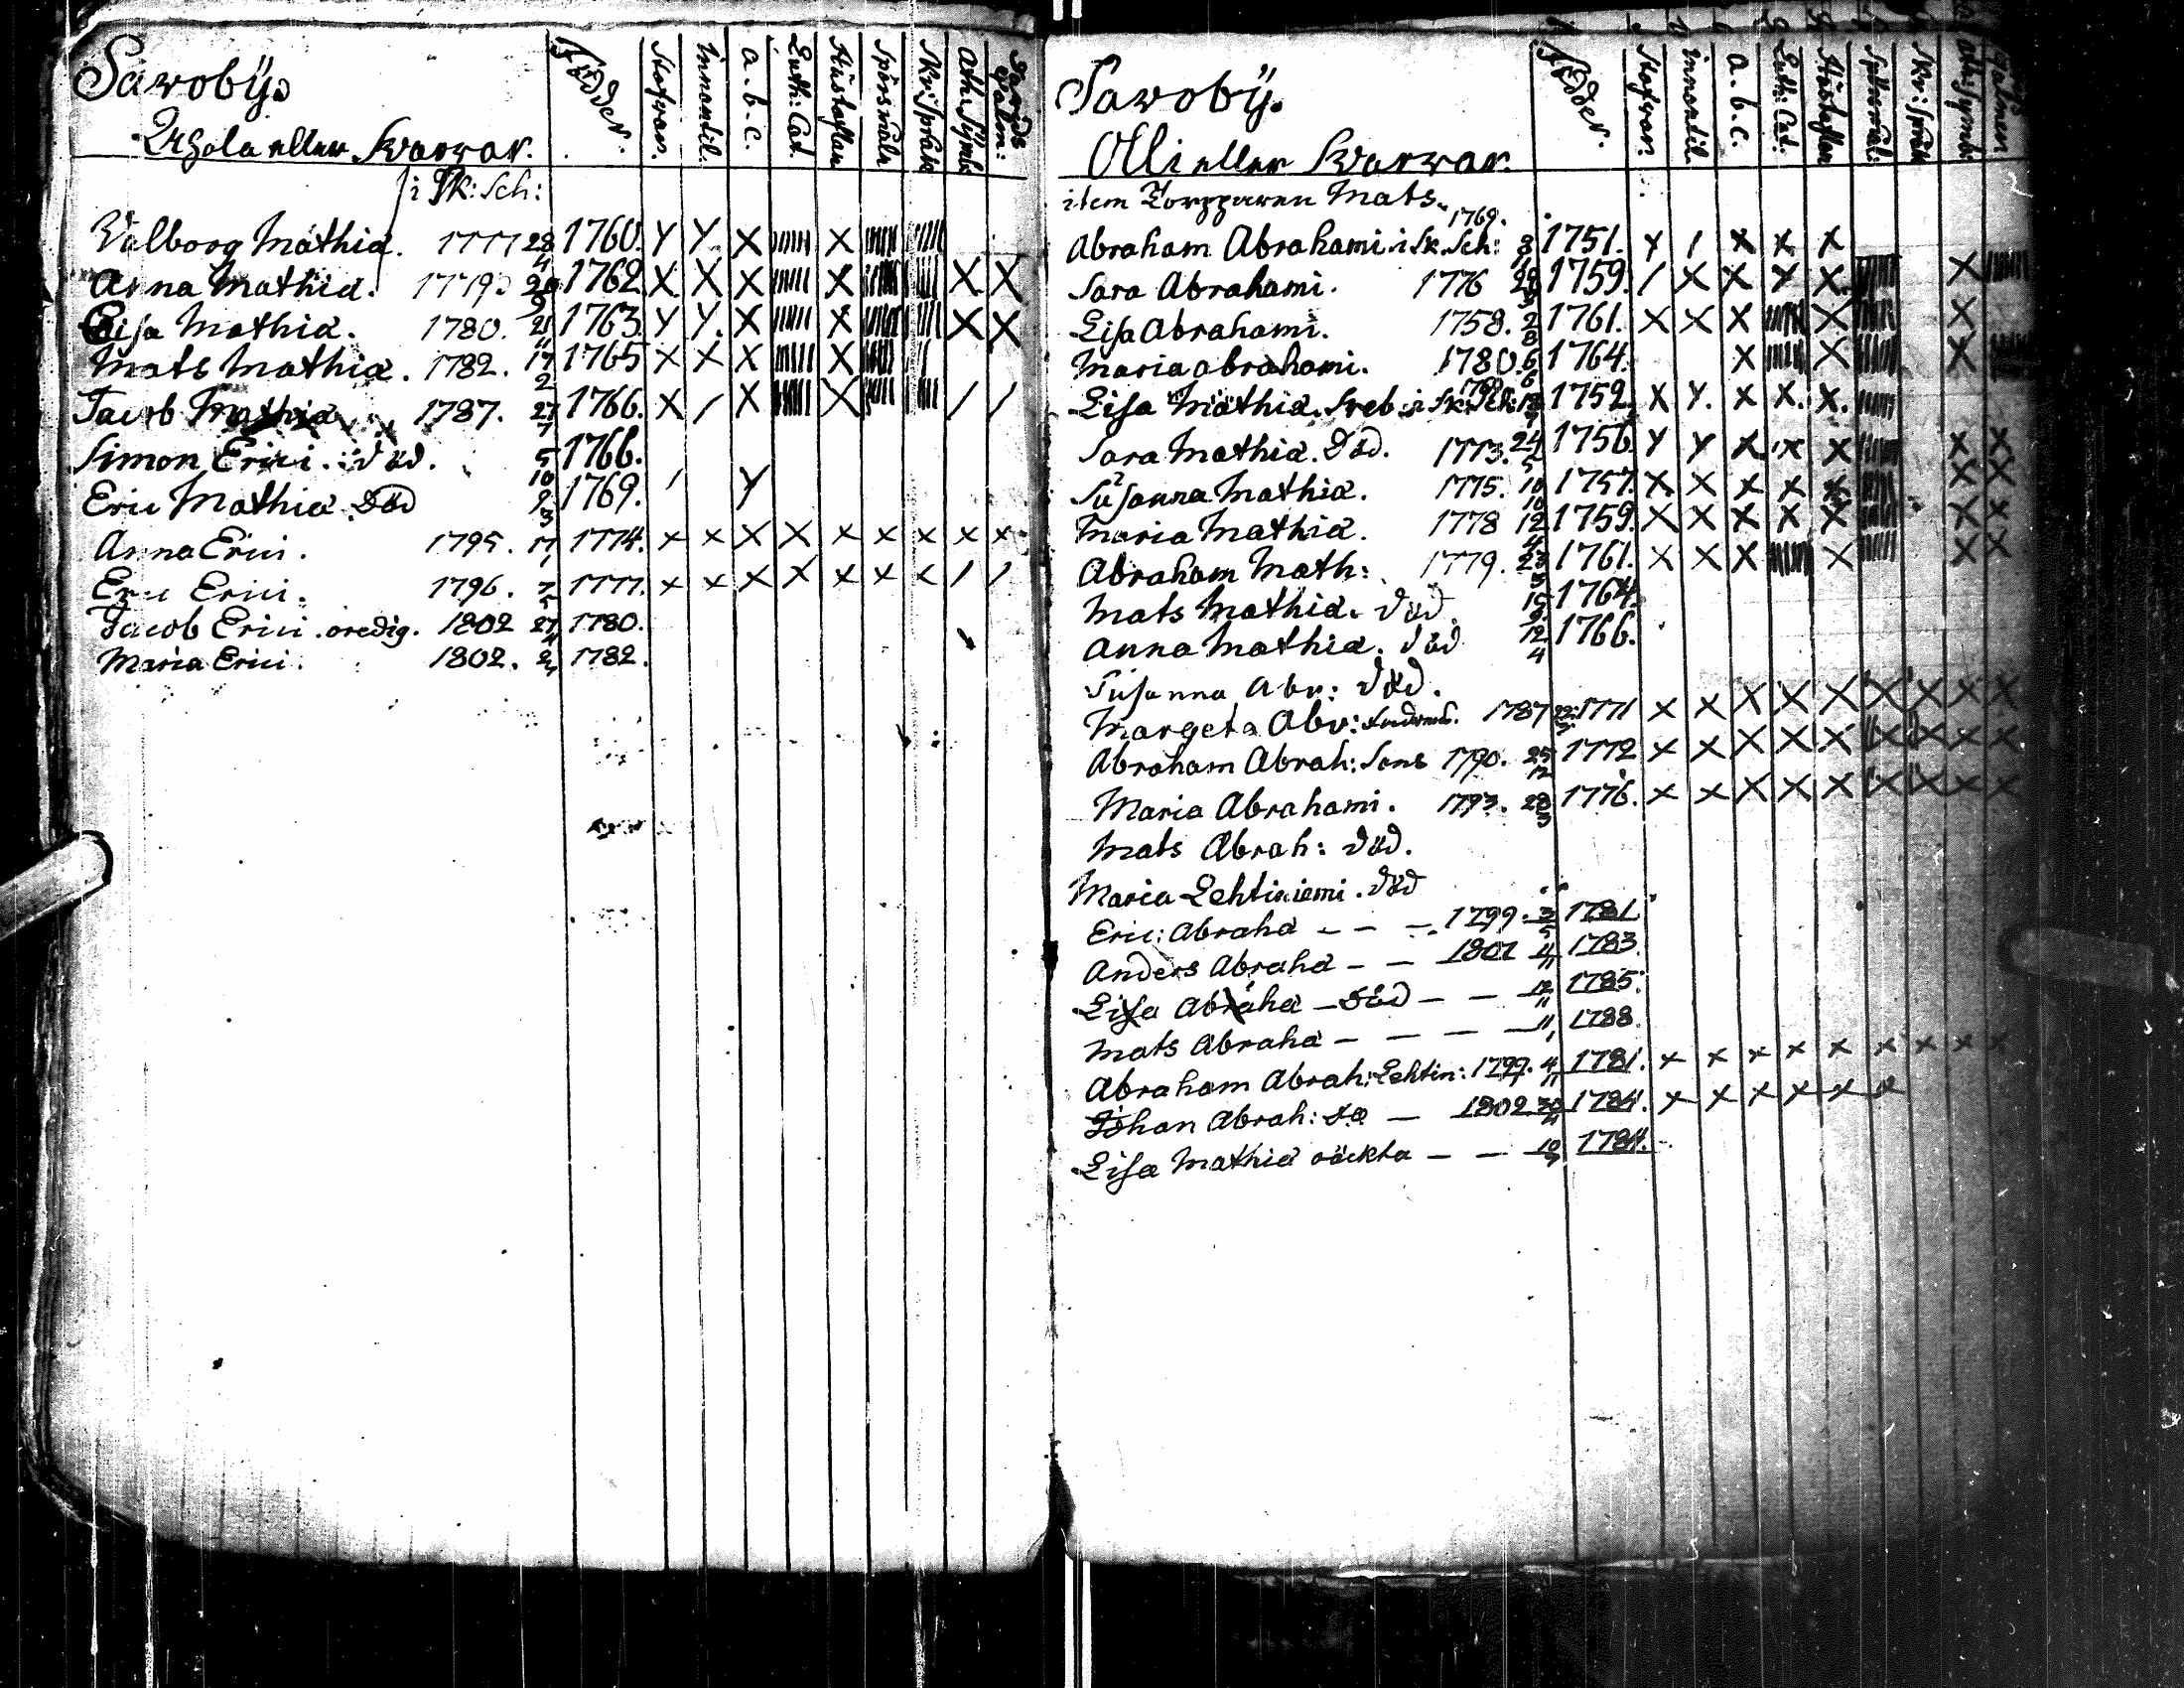 Savoby.
eller Kvarvar.
i Sk: Sch:
Född er.
Stafvar.
Innantil.
a. b. c.
Luth: Cat.
Hustaflan
Spörsmåle
Skr: Språk
Ath: Symb:
Davids Psalm:
Valborg Mathiæ. 1777 28/4 1760. Y Y X X
Anna Mathiæ. 1779. 1762 X X X X X X
Lisa Mathiæ. 1780. 21/11 1763 Y Y. X X X X
Mats Mathiæ. 1782. 17/2 1765 X X X X
Jacob Mathiæ 1787. 27/7 1766. X / X X / /
Simon Erici. död. 5/10 1766.
Eric Mathiæ. Död 9/3 1769. / Y
Anna Erici. 1795. 17/1 1774. x x x x x x x x x
Eric Erici. 1796. 7/5 1777. x x x x x x x / /
Jacob Erici. oredig. 1802 27/4 1780.
Maria Erici. 1802. 1782.
Savoby.
Olli eller Kvarvar.
item Torpparen Mats.
Född er.
Stafvar.
innantil
a. b. c.
Luth: Cat:
Hustaflan
Spörsmål:
Skr: Språk
Ath: Symb:
Psalmer
1769.
Abraham Abrahami. i Sk. Sch: 1751. Y / X X X
Sara Abrahami. 1776 1759. / X X X X X
Lisa Abrahami. 1758. 2/8 1761. X X X X X
Maria Abrahami. 1780 6/6 1764. X X X
Lisa Mathiæ. i Sk: Sch: 1752. X Y. X X. X.
Sara Mathiæ. Död. 1773. 24/5 1756. Y Y X X X X X
Susanna Mathiæ. 1775. 10/10 1757. X X X X X X X
Maria Mathiæ. 1778 12/4 1759. X X X X X X X
Abraham Math: 1779. 23/3 1761. X X X X X X
Mats Mathiæ. död. 15/9 1764.
Anna Mathiæ. död 12/4 1766.
Susanna Abr: död.
Margeta Abr: 1787 1771 X X X X X X X X X
Abraham Abrah: Sons 1790. 25/12 1772 X X X X X X X X X
Maria Abrahami. 1793. 28/3 1776. X X X X X X X X X
Mats Abrah: död.
Maria Lehtiniemi. död
Eric: Abrahæ - - - 1799. 3/5 1781
Anders Abrahæ - - 1801 4/11 1783.
Lisa Abrahæ - död - - 12/11 1785.
Mats Abrahæ - - - - 11/1 1788.
Abraham Abrah: Lehtin: 1797. 4/11 1781. x x x x x x x x x
Johan Abrah: - 1802 30/4 1784. x x x x x x
Lisa Mathiæ - - 10/9 1784.